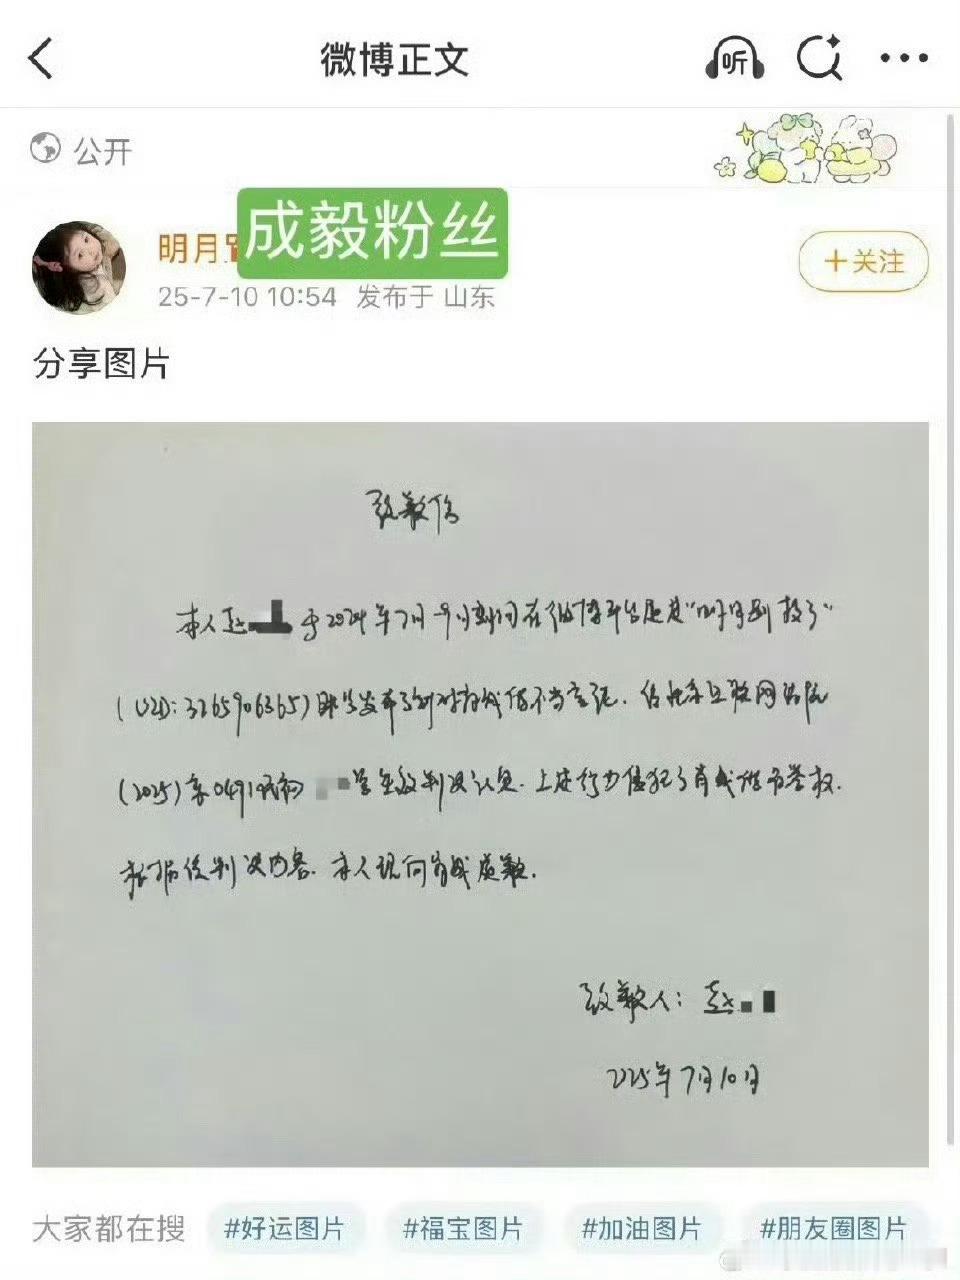 微博正文
听
公开
明月
成毅粉丝
+关注
25-7-10 10:54 发布于 山东
分享图片
致歉信
本人赵 于2024年7月 期间在微博平台通过"明月别 了"
(UID:3265906365)账号发布了针对肖战 不当言论.经北京互联网法院
(2025)京0491民初 号 判决认定.上述行为侵犯了肖战 名誉权.
根据 判决内容.本人现向肖战致歉.
致歉人:赵
2025年7月10日
大家都在搜 #好运图片 #福宝图片 #加油图片 #朋友圈图片